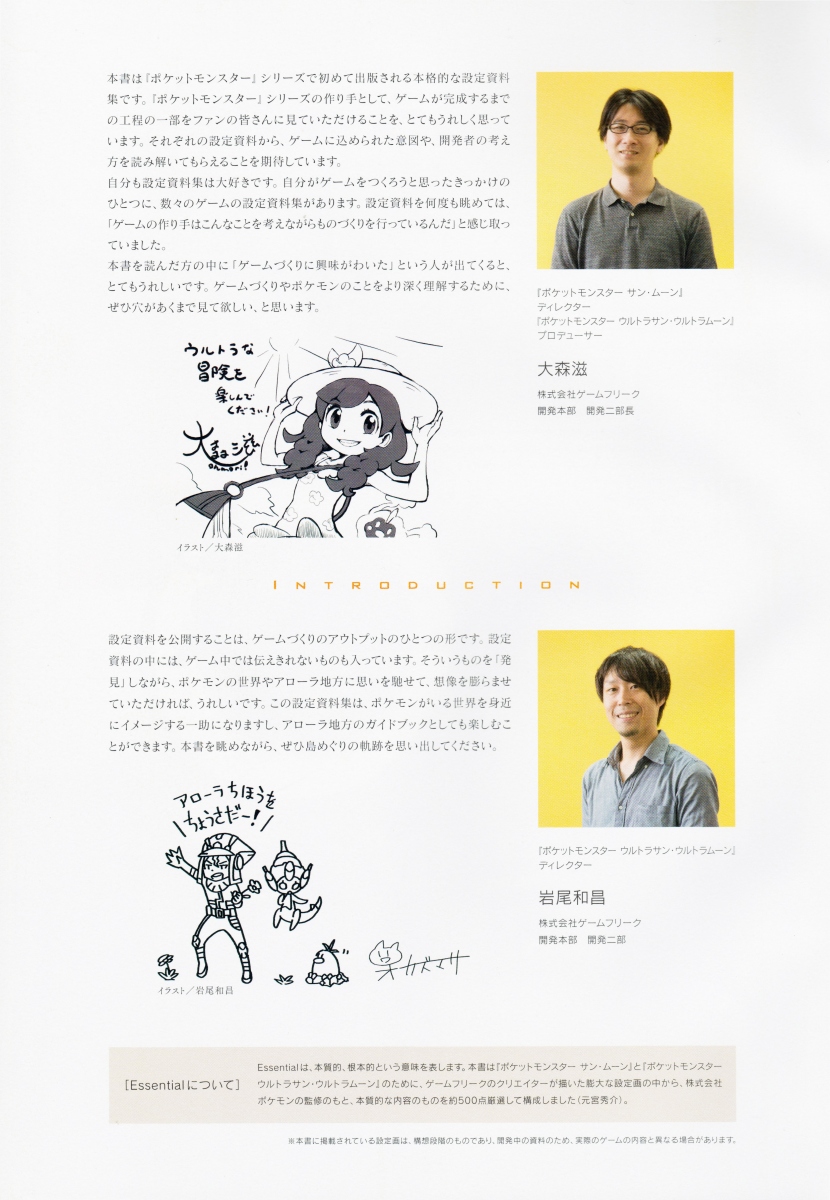 本書は『ポケットモンスター』シリーズで初めて出版される本格的な設定資料
集です。『ポケットモンスター』シリーズの作り手として、ゲームが完成するまで
の工程の一部をファンの皆さんに見ていただけることを、とてもうれしく思って
います。それぞれの設定資料から、ゲームに込められた意図や、開発者の考え
方を読み解いてもらえることを期待しています。
自分も設定資料集は大好きです。自分がゲームをつくろうと思ったきっかけの
ひとつに、数々のゲームの設定資料集があります。設定資料を何度も眺めては、
「ゲームの作り手はこんなことを考えながらものづくりを行っているんだ」と感じ取っ
ていました。
本書を読んだ方の中に「ゲームづくりに興味がわいた」という人が出てくると、
とてもうれしいです。ゲームづくりやポケモンのことをより深く理解するために、
ぜひ穴があくまで見て欲しい、と思います。
『ポケットモンスター サン・ムーン』
ディレクター
『ポケットモンスター ウルトラサン・ウルトラムーン』
プロデューサー
大森滋
株式会社ゲームフリーク
開発本部 開発二部長
ウルトラな
冒険を
楽しんで
ください!
大森滋
ohmori!
イラスト/大森滋
INTRODUCTION
設定資料を公開することは、ゲームづくりのアウトプットのひとつの形です。設定
資料の中には、ゲーム中では伝えきれないものも入っています。そういうものを「発
見」しながら、ポケモンの世界やアローラ地方に思いを馳せて、想像を膨らませ
ていただければ、うれしいです。この設定資料集は、ポケモンがいる世界を身近
にイメージする一助になりますし、アローラ地方のガイドブックとしても楽しむこ
とができます。本書を眺めながら、ぜひ島めぐりの軌跡を思い出してください。
『ポケットモンスター ウルトラサン・ウルトラムーン』
ディレクター
岩尾和昌
株式会社ゲームフリーク
開発本部 開発二部
アローラちほうを
ちょうさだー!
カズマサ
イラスト/岩尾和昌
[Essentialについて]
Essentialは、本質的、根本的という意味を表します。本書は『ポケットモンスター サン・ムーン』と『ポケットモンスター
ウルトラサン・ウルトラムーン』のために、ゲームフリークのクリエイターが描いた膨大な設定画の中から、株式会社
ポケモンの監修のもと、本質的な内容のものを約500点厳選して構成しました(元宮秀介)。
※本書に掲載されている設定画は、構想段階のものであり、開発中の資料のため、実際のゲームの内容と異なる場合があります。